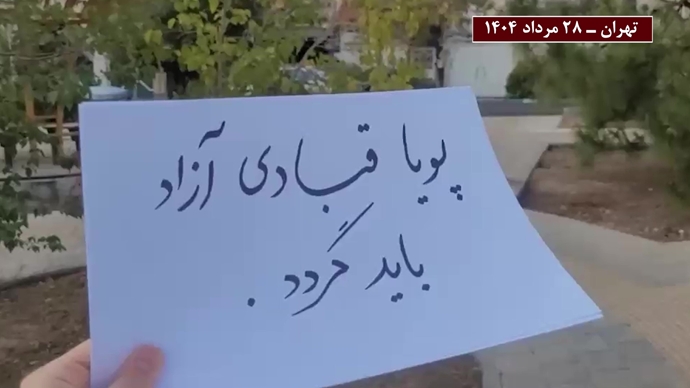 تهران ـ ۲۸ مرداد ۱۴۰۴
پویا قبادی آزاد
باید گردد .